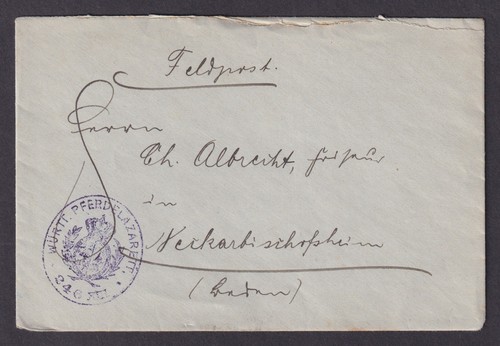 Feldpost.
Herrn
Ch. Albrecht, Friseur
in
Neckarbischofsheim
(Baden)
WÜRTT. PFERDELAZARETT.
246